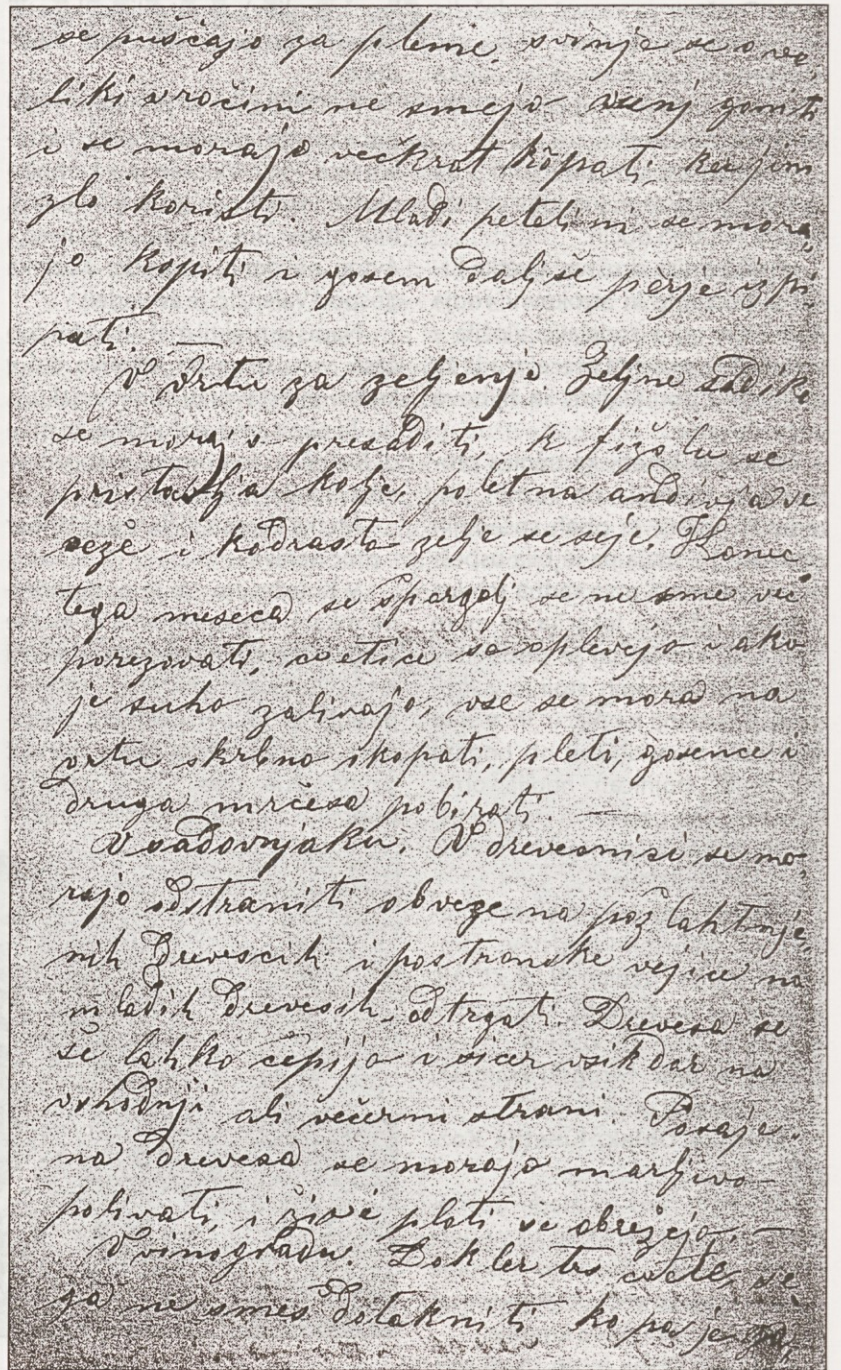 se puščajo za pleme, svinje se o ve-
liki vročini ne smejo venj goniti
i se morajo večkrat kopati, ker jim
zlo koristi. Mladi petelini se mora-
jo kopiti i gosem daljše perje izpi-
pati. —
V vrtu za zeljenje. Zeljne sadike
se morajo presaditi, k fižolu se
pristavlja kolje, poletna andivja se
veže i kodrasto zelje se seje. Konec
tega meseca se špargelj se ne sme več
porezovati, cvetice se oplevejo i ako
je suho zalivajo, vse se mora na
vrtu skrbno skopati, pleti, gosence i
druga mrčesa pobirati. —
V sadovnjaku. V drevesnici se mo-
rajo odstraniti obveze na požlahtnje-
nih drevescih i postranske vejice na
mladih drevesih odtrgati. Drevesa se
še lahko cepijo i sicer vsikdar na
vshodnji ali večerni strani. Posaje-
na drevesa se morajo marljivo
polivati, i žive ploti se obrežejo. —
V vinogradu. Dokler trs cvete, se
ga ne smeš dotakniti ko pa je